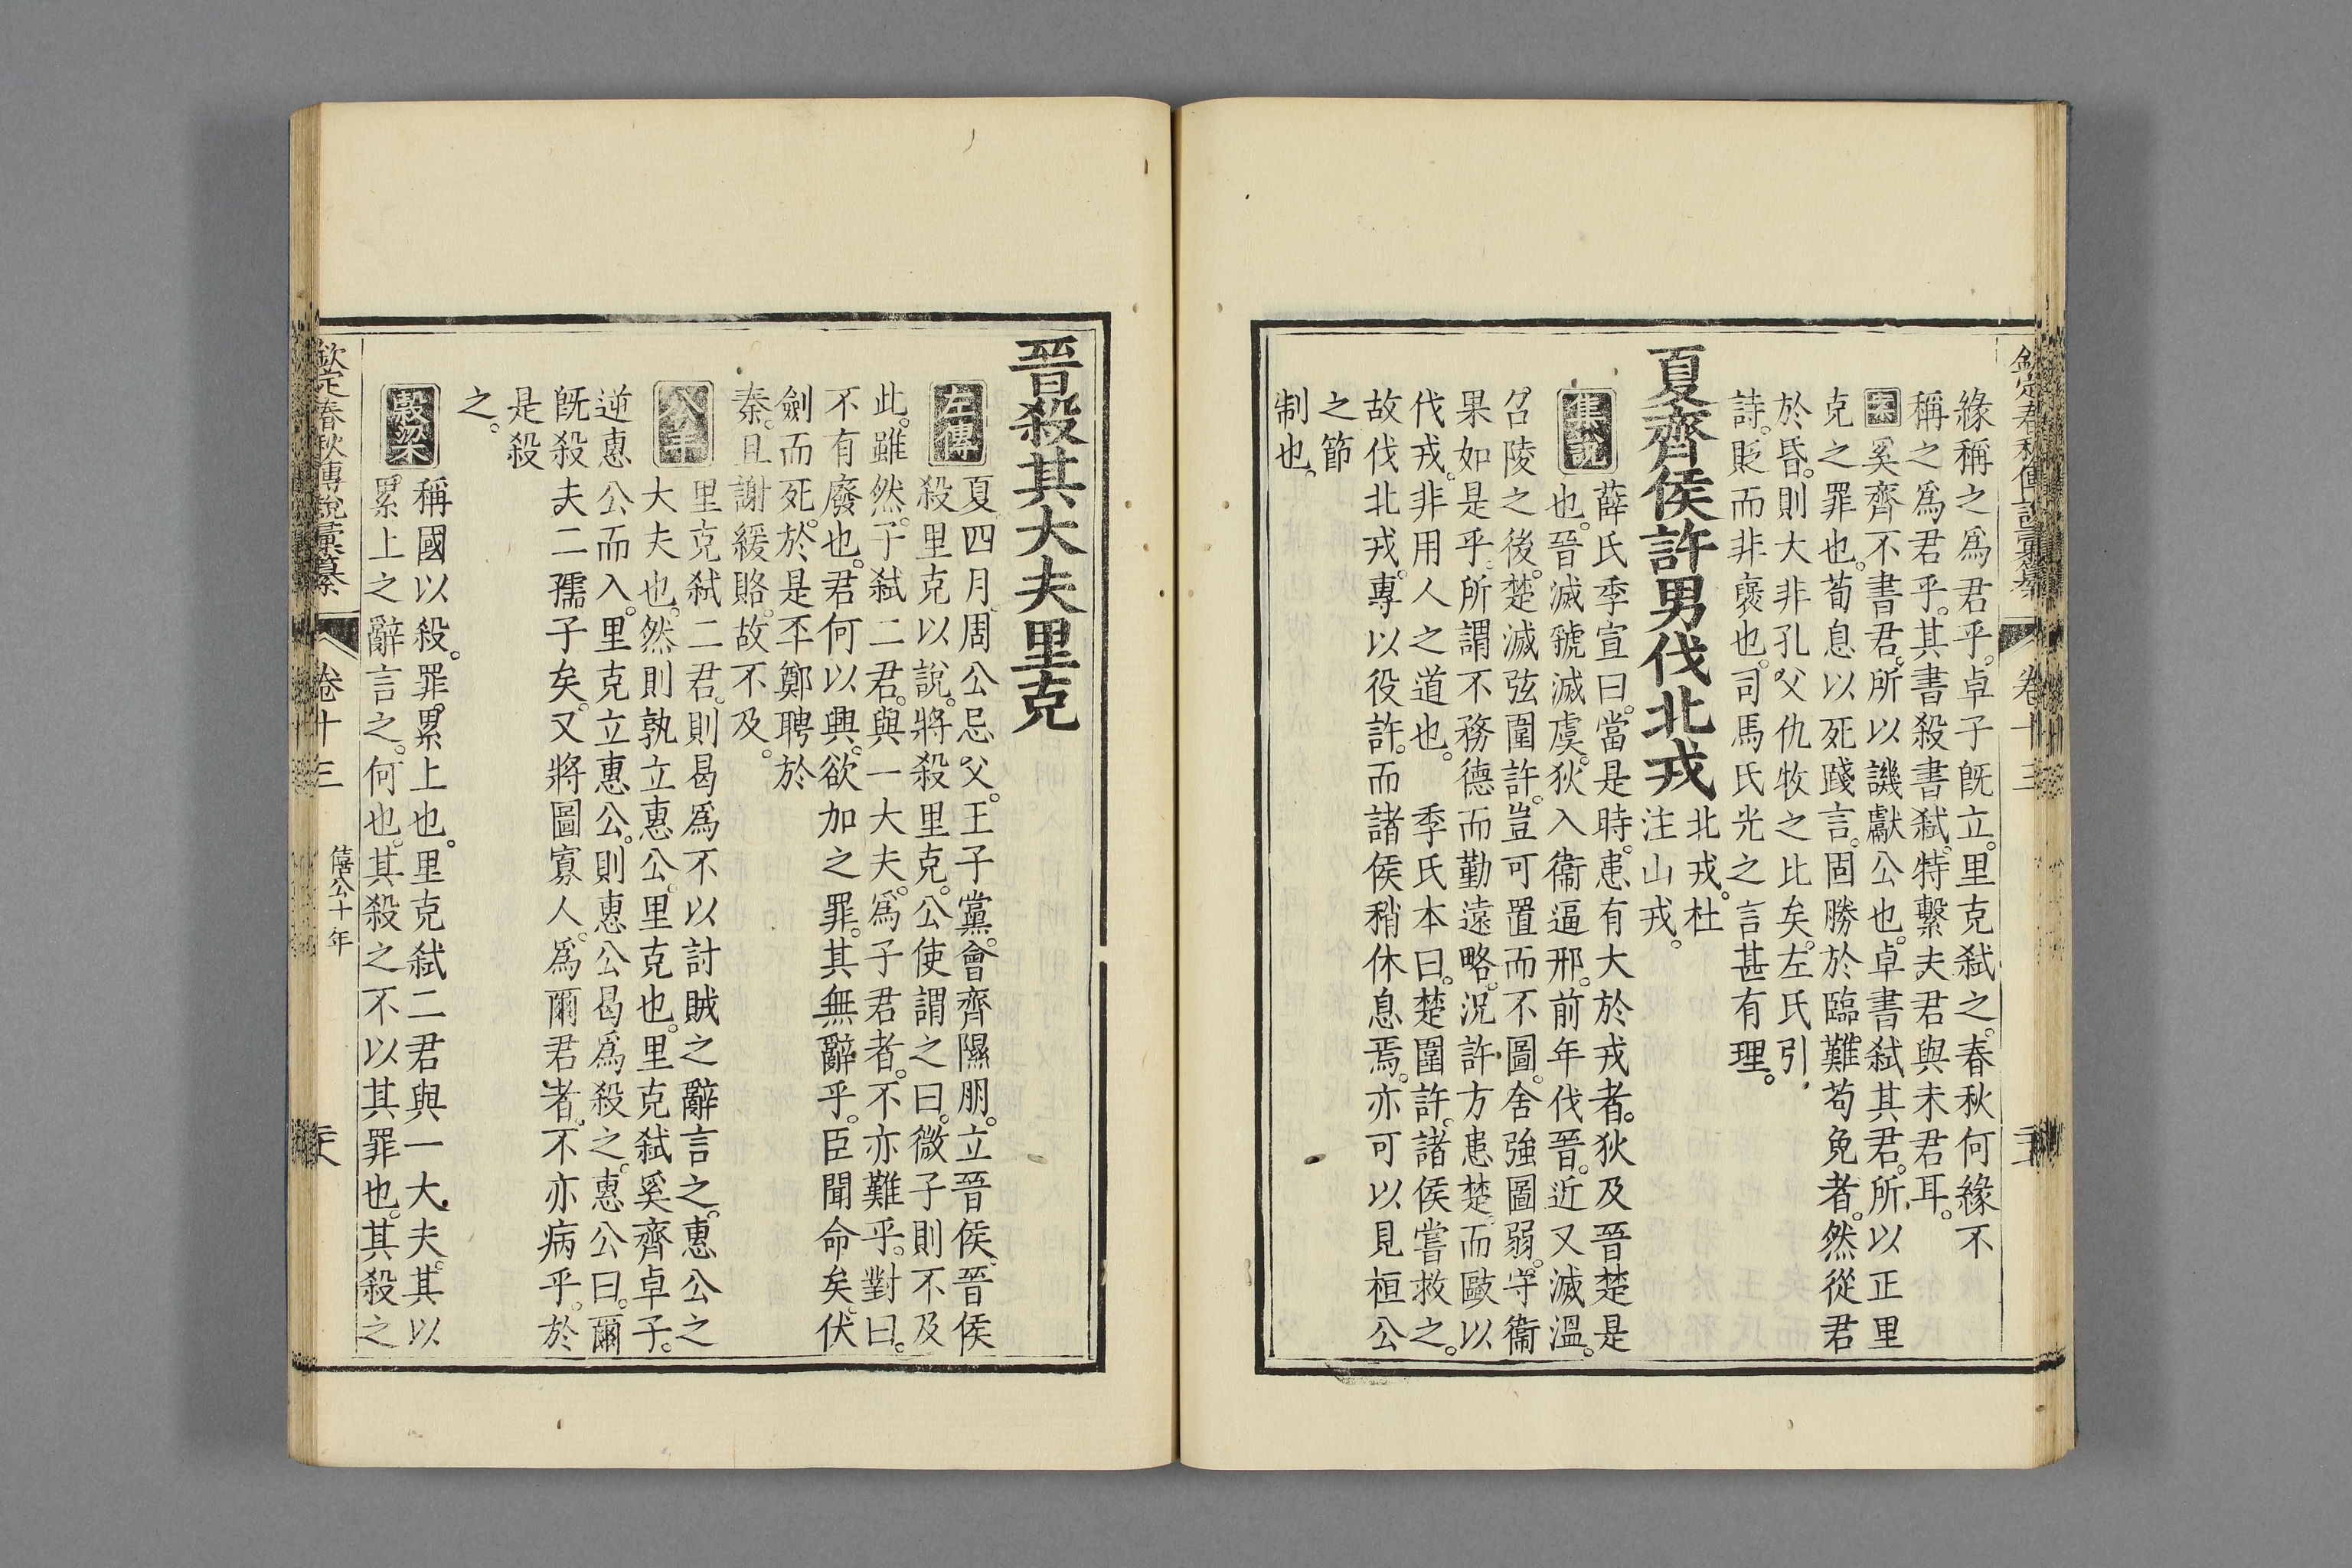 欽定春秋傳說彙纂 卷十三
緣稱之爲君乎。卓子旣立。里克弑之。春秋何緣不
稱之爲君乎。其書殺書弑。特繫夫君與未君耳。
案 奚齊不書君。所以譏獻公也。卓書弑其君。所以正里
克之罪也。荀息以死踐言。固勝於臨難苟免者。然從君
於昏。則大非孔父仇牧之比矣。左氏引
詩。貶而非褒也。司馬氏光之言甚有理。
夏齊侯許男伐北戎 北戎。杜
注山戎。
集說 薛氏季宣曰。當是時。患有大於戎者。狄及晉楚是
也。晉滅虢滅虞。狄入衞逼邢。前年伐晉。近又滅溫。
召陵之後。楚滅弦圍許。豈可置而不圖。舍強圖弱。守衞
果如是乎。所謂不務德而勤遠略。況許方患楚。而毆以
伐戎。非用人之道也。 季氏本曰。楚圍許。諸侯嘗救之。
故伐北戎。專以役許。而諸侯稍休息焉。亦可以見桓公
之節
制也。
晉殺其大夫里克
左傳 夏四月。周公忌父。王子黨。會齊隰朋。立晉侯。晉侯
殺里克以說。將殺里克。公使謂之曰。微子則不及
此。雖然。子弑二君。與一大夫。爲子君者。不亦難乎。對曰。
不有廢也。君何以興。欲加之罪。其無辭乎。臣聞命矣。伏
劍而死。於是丕鄭聘於
秦。且謝緩賂。故不及。
公羊 里克弑二君。則曷爲不以討賊之辭言之。惠公之
大夫也。然則孰立惠公。里克也。里克弑奚齊卓子。
逆惠公而入。里克立惠公。則惠公曷爲殺之。惠公曰。爾
旣殺夫二孺子矣。又將圖寡人。爲爾君者。不亦病乎。於
是殺
之。
穀梁 稱國以殺。罪累上也。里克弑二君與一大夫。其以
累上之辭言之。何也。其殺之不以其罪也。其殺之
欽定春秋傳說彙纂 卷十三 僖公十年